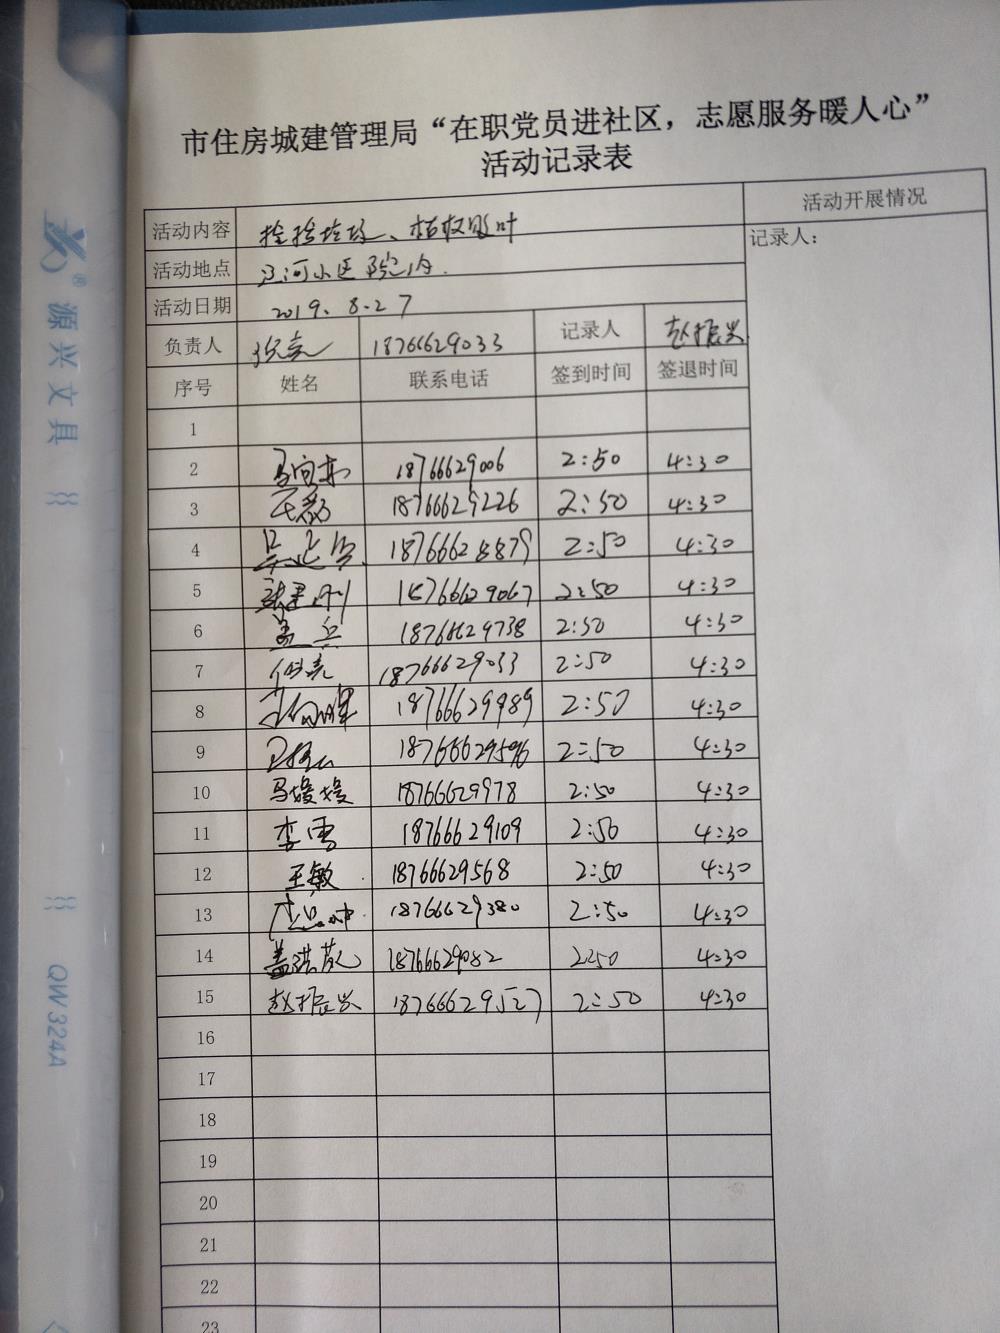 市住房城建管理局“在职党员进社区，志愿服务暖人心”
活动记录表
活动内容 捡拾垃圾、枯枝败叶 活动开展情况
活动地点 辽河小区院内. 记录人：
活动日期 2019.8.27
负责人 18766629033 记录人 赵振兴
序号 姓名 联系电话 签到时间 签退时间
1
2 18766629006 2:50 4:30
3 18766629226 2:50 4:30
4 18766628879 2:50 4:30
5 18766629067 2:50 4:30
6 盖兵 18766629738 2:50 4:30
7 18766629033 2:50 4:30
8 18766629989 2:50 4:30
9 18766629596 2:50 4:30
10 马媛媛 18766629978 2:50 4:30
11 李雪 18766629109 2:50 4:30
12 王敏 18766629568 2:50 4:30
13 18766629380 2:50 4:30
14 盖洪 18766629082 2:50 4:30
15 赵振兴 18766629527 2:50 4:30
16
17
18
19
20
21
22
23
源兴文具
QW324A